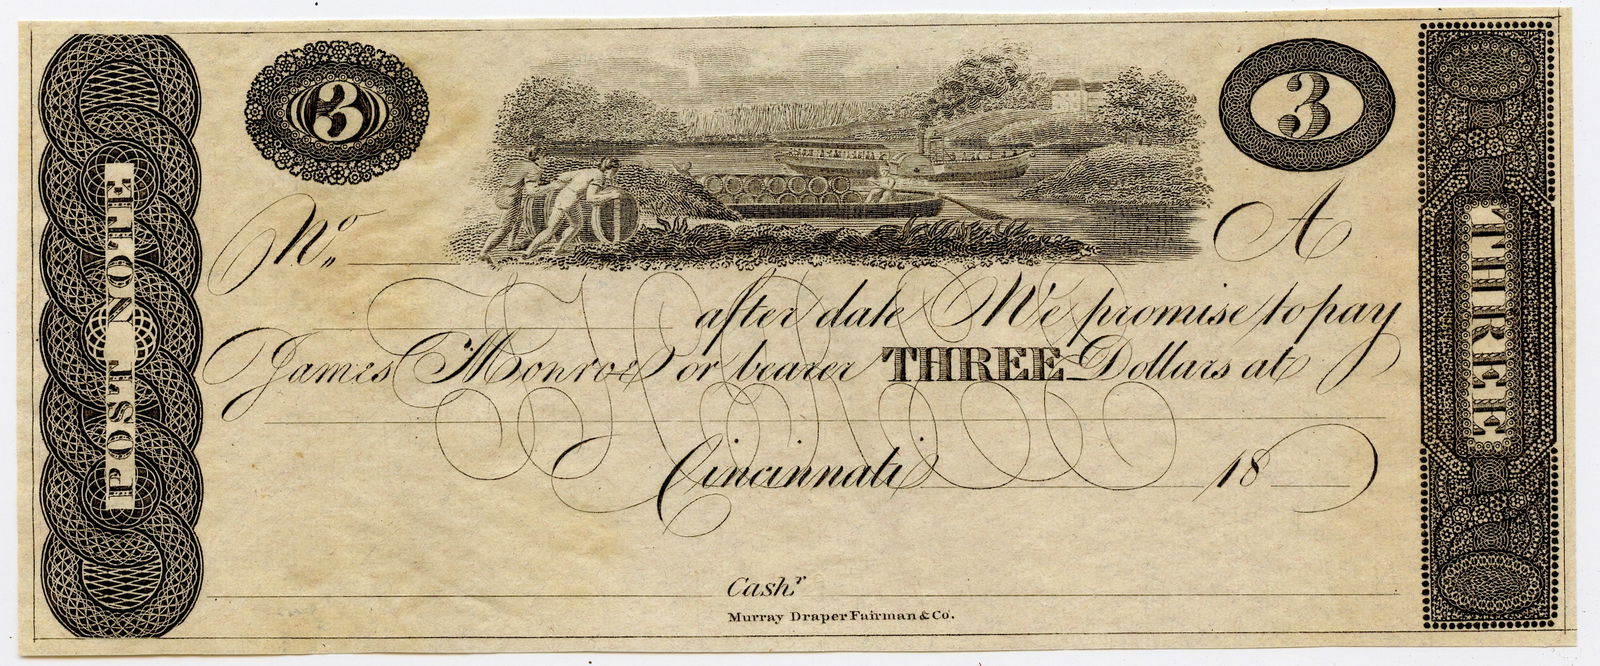 POST NOTE
3
3
THREE
No.
A
after date We promise to pay
James Monroe or bearer THREE Dollars at
Cincinnati 18
Cashr
Murray Draper Fairman & Co.